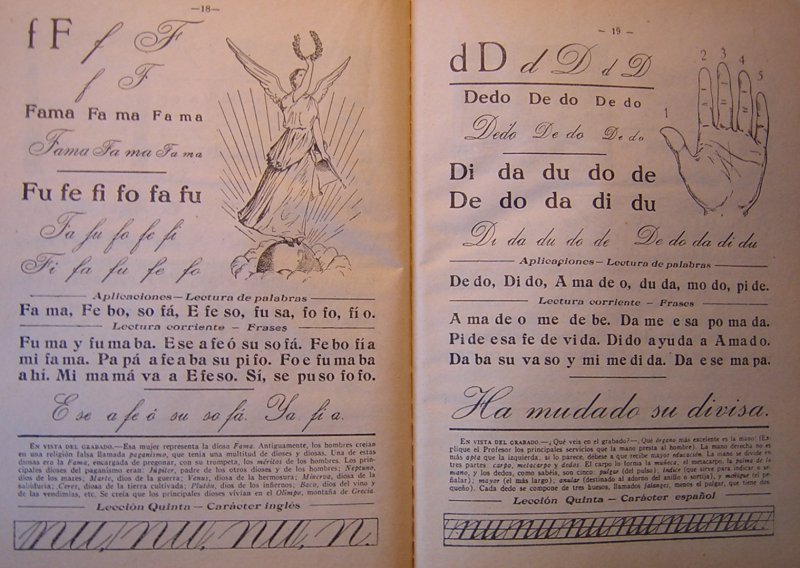 —18—
f F f F
f F
Fama Fa ma Fa ma
Fama Fa ma Fa ma
Fu fe fi fo fa fu
Fa fu fo fe fi
Fi fa fu fe fo
Aplicaciones—Lectura de palabras
Fa ma, Fe bo, so fá, E fe so, fu sa, fo fo, fí o.
Lectura corriente — Frases
Fu ma y fu ma ba. E se a fe ó su so fá. Fe bo fía
mi fa ma. Pa pá a fe a ba su pi fo. Fo e fu ma ba
a hí. Mi ma má va a E fe so. Sí, se pu so fo fo.
E se a fe ó su so fá. Ya fí a.
EN VISTA DEL GRABADO.—Esa mujer representa la diosa Fama. Antiguamente, los hombres creían
en una religión falsa llamada paganismo, que tenía una multitud de dioses y diosas. Una de estas
diosas era la Fama, encargada de pregonar, con su trompeta, los méritos de los hombres. Los prin-
cipales dioses del paganismo eran: Júpiter, padre de los otros dioses y de los hombres; Neptuno,
dios de los mares; Marte, dios de la guerra; Venus, diosa de la hermosura; Minerva, diosa de la
sabiduría; Ceres, diosa de la tierra cultivada; Plutón, dios de los infiernos; Baco, dios del vino y
de las vendimias, etc. Se creía que los principales dioses vivían en el Olimpo, montaña de Grecia.
Lección Quinta — Carácter inglés
nu. nu. nu. n.
— 19 —
d D d D d D
1 2 3 4 5
Dedo De do De do
Dedo De do De do
Di da du do de
De do da di du
Di da du do de De do da di du
Aplicaciones — Lectura de palabras
De do, Di do, A ma de o, du da, mo do, pi de.
Lectura corriente — Frases
A ma de o me de be. Da me e sa po ma da.
Pi de e sa fe de vi da. Di do a yu da a A ma do.
Da ba su va so y mi me di da. Da e se ma pa.
Ha mudado su divisa.
EN VISTA DEL GRABADO.—¿Qué veis en el grabado?—¿Qué órgano más excelente es la mano! (Ex-
plique el Profesor los principales servicios que la mano presta al hombre). La mano derecha no es
más apta que la izquierda; si lo parece, débese a que recibe mayor educación. La mano se divide en
tres partes carpo, metacarpo y dedos. El carpo lo forma la muñeca, el metacarpo, la palma de la
mano, y los dedos, como sabéis, son cinco: pulgar (del pulso), índice (que sirve para indicar o se-
ñalar); mayor (el más largo); anular (destinado al adorno del anillo o sortija), y meñique (el pe-
queño). Cada dedo se compone de tres huesos, llamados falanges, menos el pulgar, que tiene dos
Lección Quinta — Carácter español